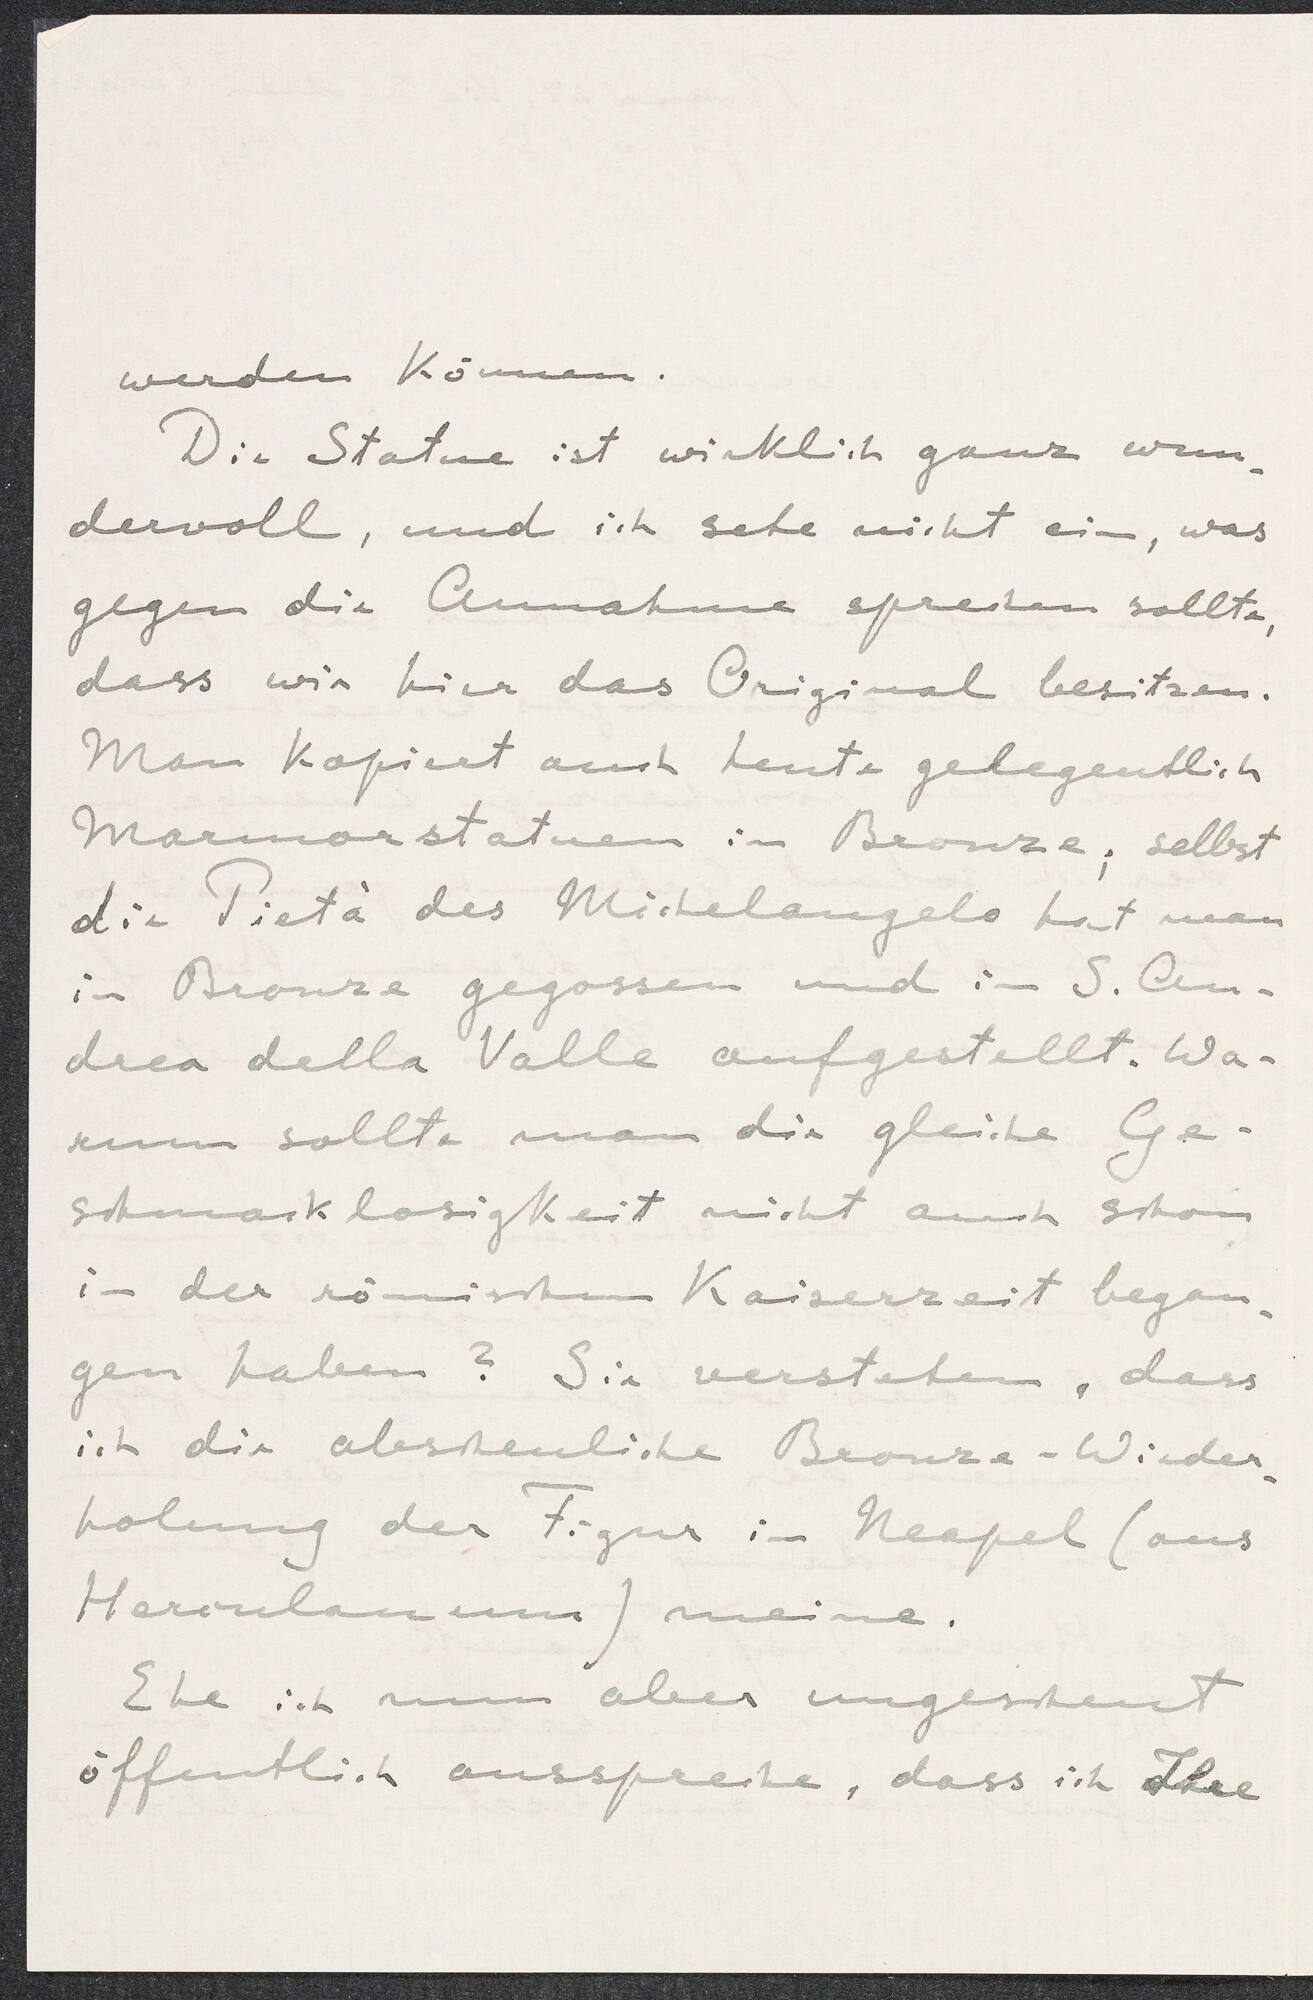 werden können.
Die Statue ist wirklich ganz wun-
dervoll, und ich sehe nicht ein, was
gegen die Annahme sprechen sollte,
dass wir hier das Original besitzen.
Man kopiert auch heute gelegentlich
Marmorstatuen in Bronze; selbst
die Pietà des Michelangelo hat man
in Bronze gegossen und in S. An-
drea della Valle aufgestellt. Wa-
rum sollte man die gleiche Ge-
schmacklosigkeit nicht auch schon
in der römischen Kaiserzeit began-
gen haben? Sie verstehen, dass
ich die abscheuliche Bronze-Wieder-
holung der Figur in Neapel (aus
Herculanum) meine.
Ehe ich nun aber ungescheut
öffentlich ausspreche, dass ich Ihre